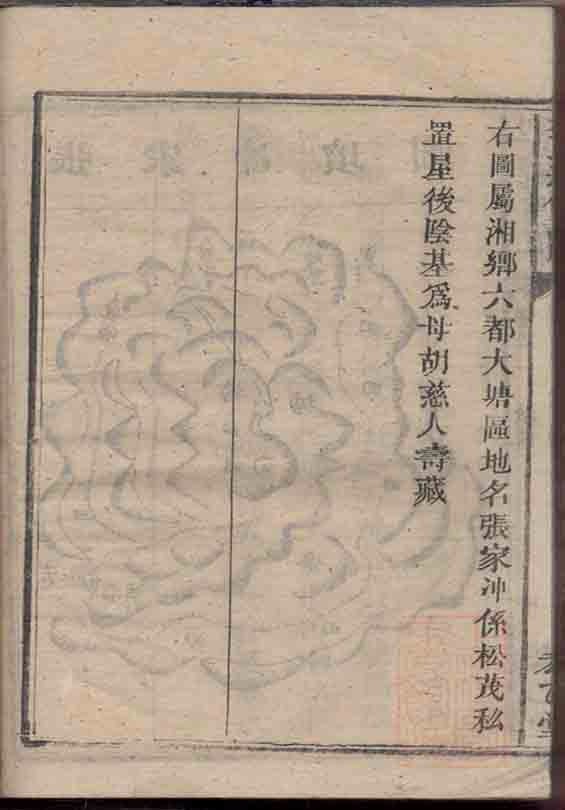 右圖屬湘鄉六都大塘區地名張家冲係松茂私
置屋後陰基爲母胡慈人壽藏